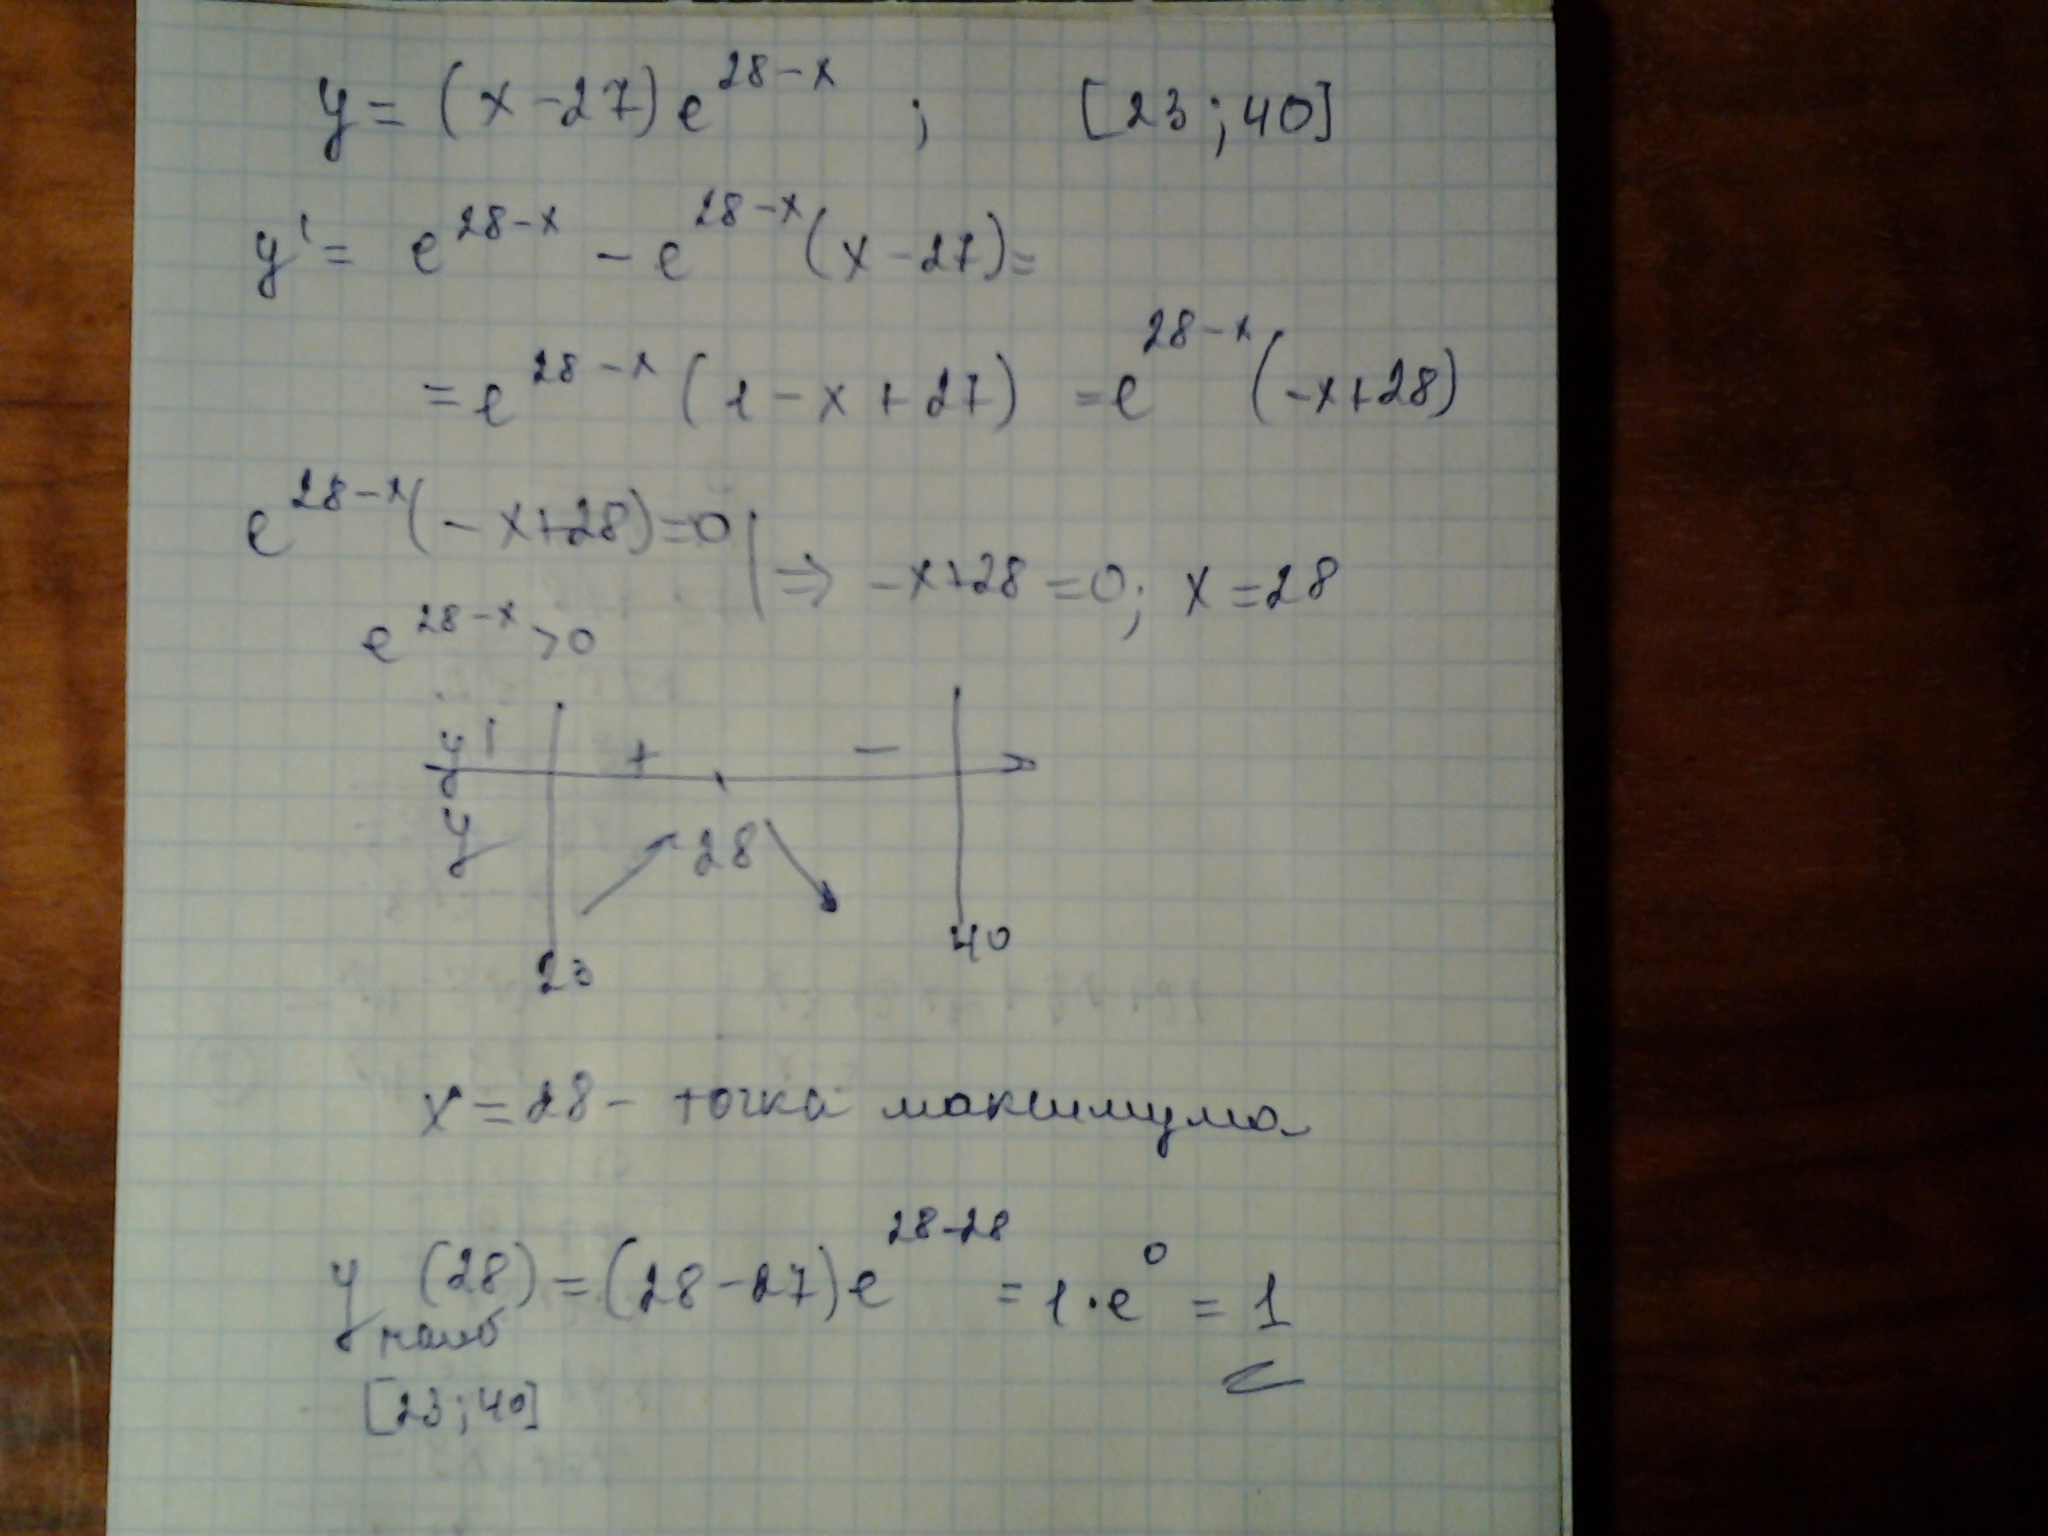 y = (x-27)e^{28-x} ; [23;40]
y' = e^{28-x} - e^{28-x}(x-27) =
= e^{28-x}(1-x+27) = e^{28-x}(-x+28)
e^{28-x}(-x+28)=0 | ⇒ -x+28=0; x=28
e^{28-x}>0
y' + -
y 28
23 40
x=28 - точка максимума
y наиб (28) = (28-27)e^{28-28} = 1·e^0 = 1
[23;40]